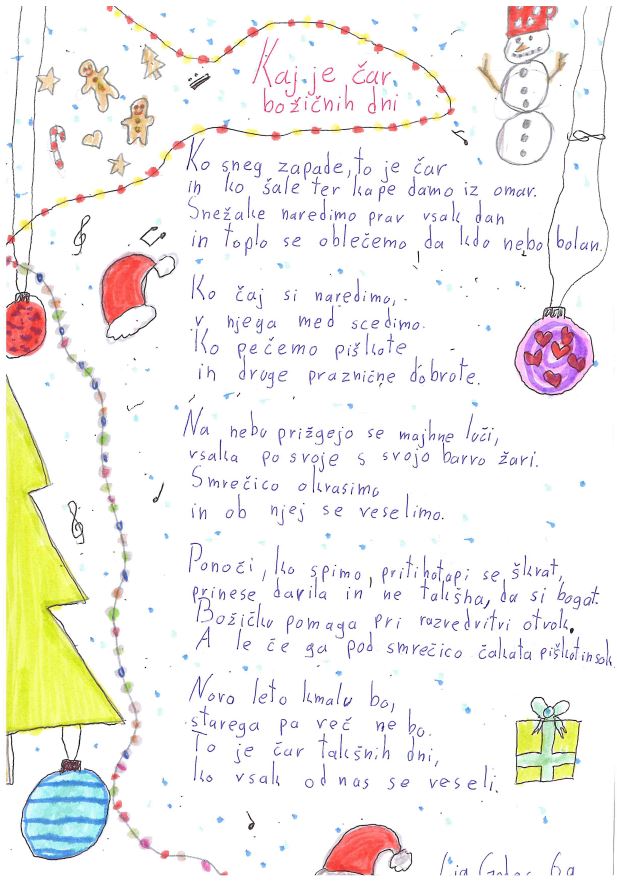 Kaj je čar
božičnih dni
Ko sneg zapade, to je čar
in ko šale ter kape damo iz omar.
Snežake naredimo prav vsak dan
in toplo se oblečemo, da kdo nebo bolan.
Ko čaj si naredimo,
v njega med scedimo.
Ko pečemo piškote
in druge praznične dobrote.
Na nebu prižgejo se majhne luči,
vsaka po svoje s svojo barvo žari.
Smrečico okrasimo
in ob njej se veselimo.
Ponoči, ko spimo, pritihotapi se škrat,
prinese darila in ne takšna, da si bogat.
Božičku pomaga pri razvedritvi otrok.
A le če ga pod smrečico čakata piškot in sok.
Novo leto kmalu bo,
starega pa več ne bo.
To je čar takšnih dni,
ko vsak od nas se veseli.